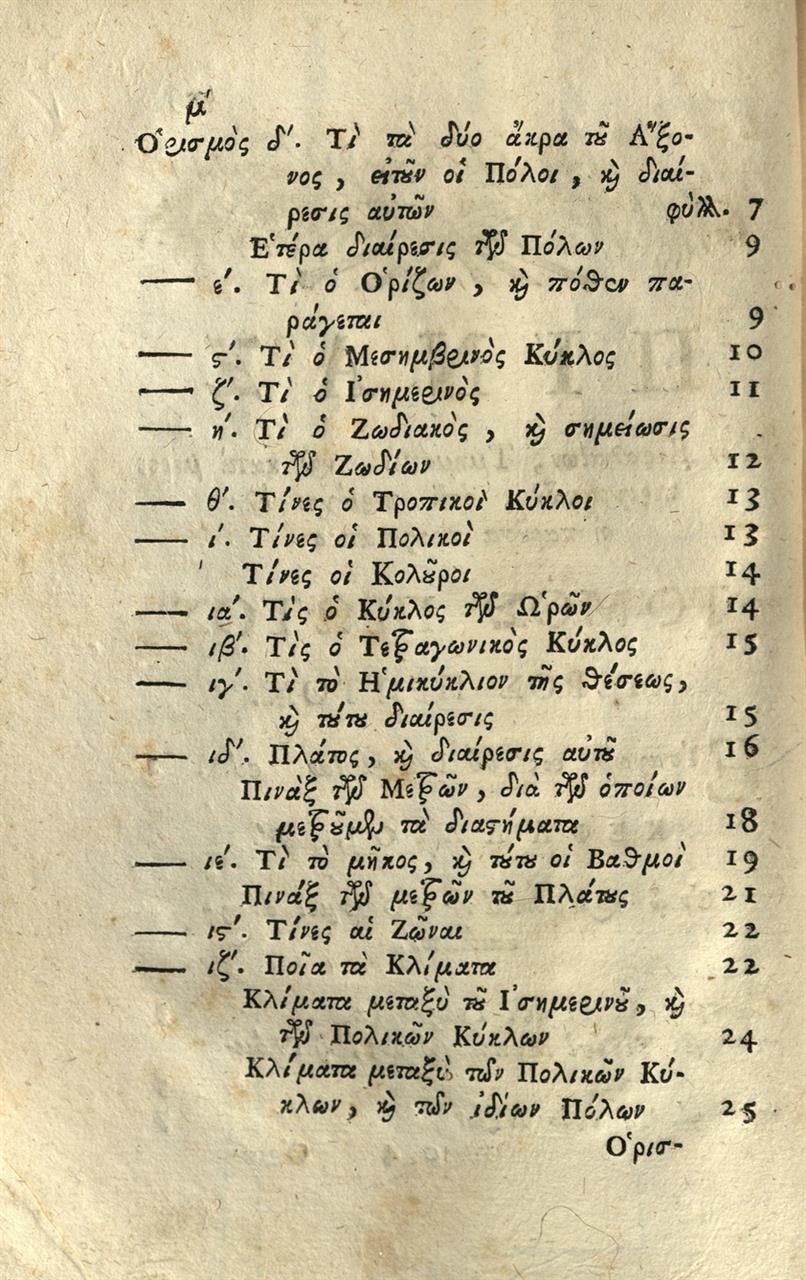 μ'
Ὁρισμὸς δ'. Τὶ τὰ δύο ἄκρα τȣ͂ Ἄξο-
νος, εἰτȣ͂ν οἱ Πόλοι, ϗ̀ διαί-
ρεσις αὐτῶν φύλλ. 7
Ἑτέρα διαίρεσις τῶν Πόλων 9
—— ε'. Τὶ ὁ Ὁρίζων, ϗ̀ πόθεν πα-
ράγεται 9
—— ϛ'. Τὶ ὁ Μεσημβρινὸς Κύκλος 10
—— ζ'. Τὶ ὁ Ἰσημερινὸς 11
—— η'. Τὶ ὁ Ζωδιακὸς, ϗ̀ σημείωσις
τῶν Ζωδίων 12
—— θ'. Τίνες ὁ Τροπικοὶ Κύκλοι 13
—— ι'. Τίνες οἱ Πολικοὶ 13
Τίνες οἱ Κολȣ͂ροι 14
—— ια'. Τὶς ὁ Κύκλος τῶν Ὡρῶν 14
—— ιβ'. Τὶς ὁ Τετραγωνικὸς Κύκλος 15
—— ιγ'. Τὶ τὸ Ἡμικύκλιον τῆς θέσεως,
ϗ̀ τȣ́τȣ διαίρεσις 15
—— ιδ'. Πλάτος, ϗ̀ διαίρεσις αὐτȣ͂ 16
Πινὰξ τῶν Μετρῶν, διὰ τῶν ὁποίων
μετρȣ͂μεν τὰ διαστήματα 18
—— ιε'. Τὶ τὸ μῆκος, ϗ̀ τȣ́τȣ οἱ Βαθμοὶ 19
Πινάξ τῶν μετρῶν τȣ͂ Πλάτȣς 21
—— ιϛ'. Τίνες αἱ Ζῶναι 22
—— ιζ'. Ποῖα τὰ Κλίματα 22
Κλίματα μεταξὺ τȣ͂ Ἰσημερινȣ͂, ϗ̀
τῶν Πολικῶν Κύκλων 24
Κλίματα μεταξὺ τῶν Πολικῶν Κύ-
κλων, ϗ̀ τῶν ἰδίων Πόλων 25
Ὁρισ-